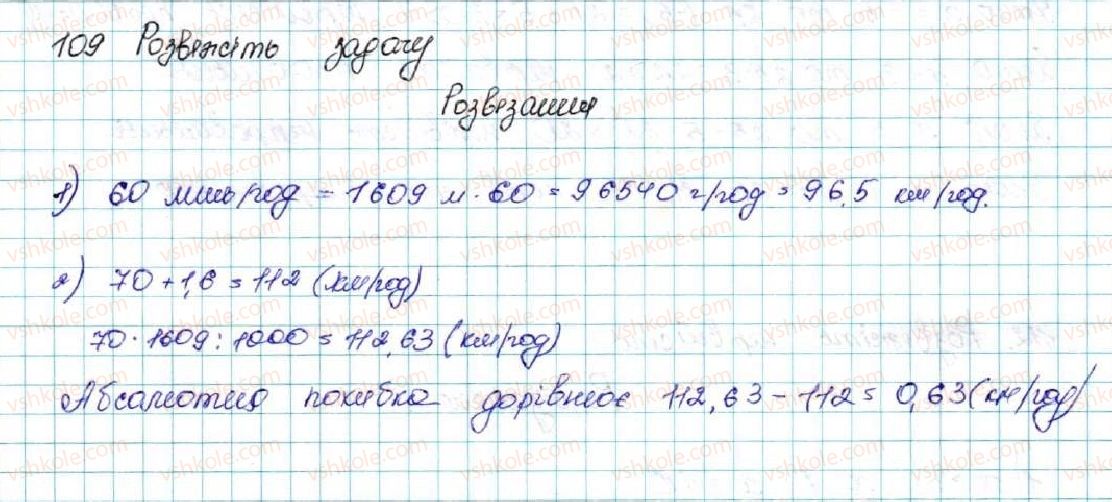 109 Розвяжіть задачу
Розвязання
1) 60 миль/год = 1609 м · 60 = 96540 г/год = 96,5 км/год.
2) 70 + 1,6 = 112 (км/год)
70 · 1609 : 1000 = 112,63 (км/год)
Абсолютна похибка дорівнює 112,63 - 112 = 0,63 (км/год)